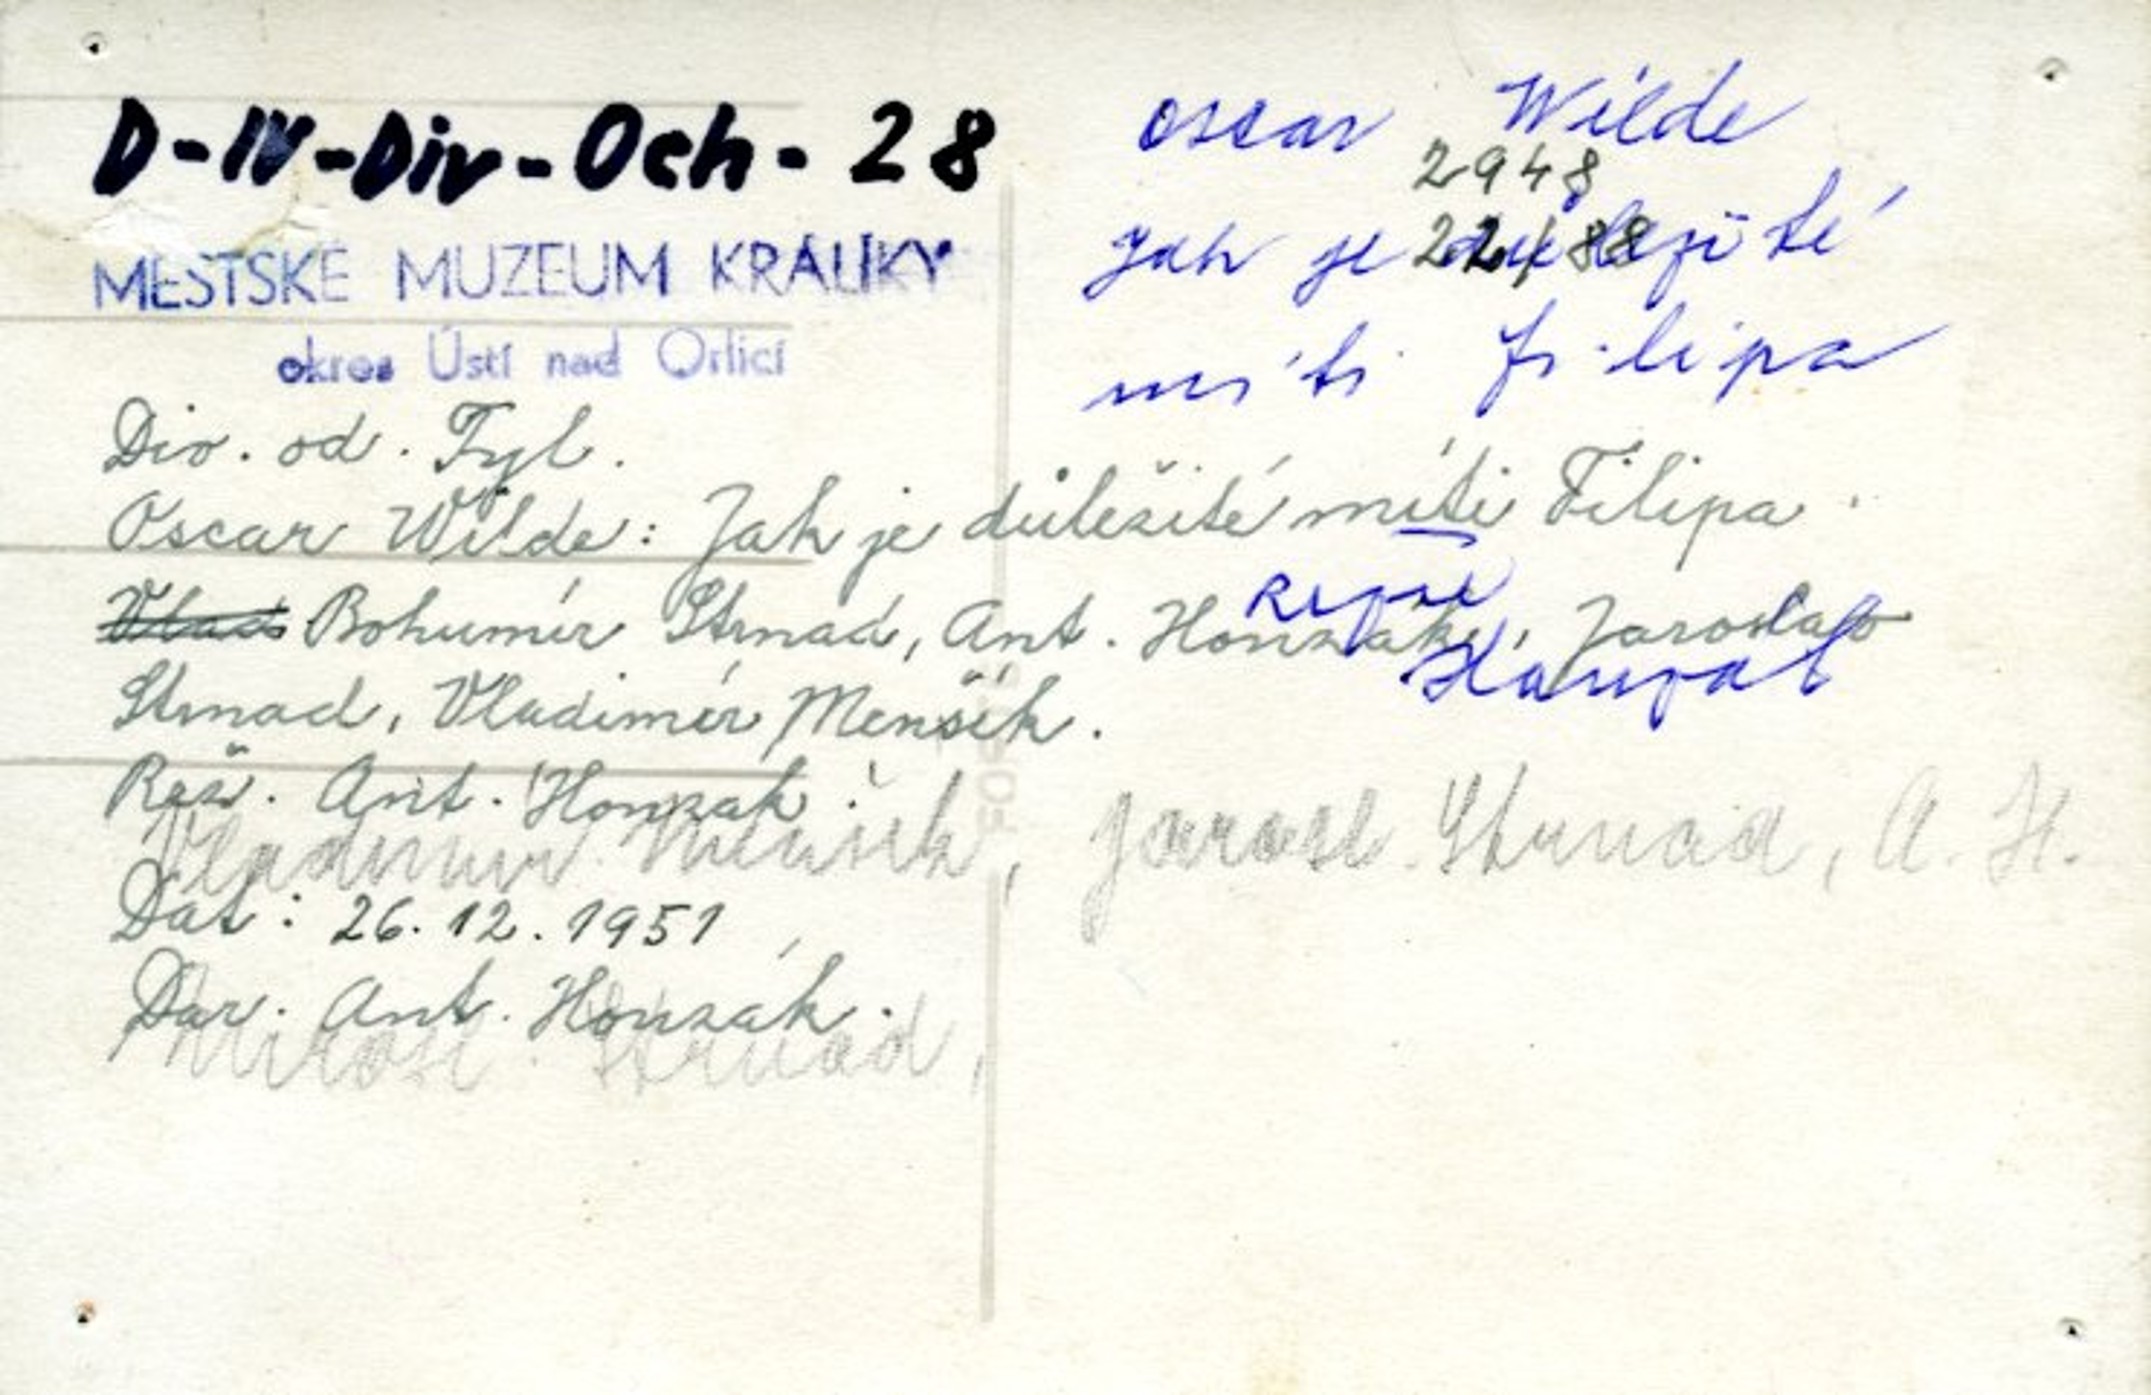 D-IV-Div-Och-28
MĚSTSKÉ MUZEUM KRÁLÍKY
okres Ústí nad Orlicí
Oscar Wilde
2948
22/88
jak je důležité
míti filipa
Div. od. Tyl.
Oscar Wilde: Jak je důležité míti Filipa.
Bohumír Strnad, Ant. Honzák, Jaroslav
Strnad, Vladimír Menšík.
Režie
Rež. Ant. Honzák.
Vladimír Menšík, Jarosl. Strnad, A. H.
Dat: 26.12.1951
Dar. Ant. Honzák.
Strnad,